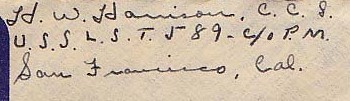 H. W. Harrison, C. C. S.
U. S. S. L. S. T. 589 - c/o P.M.
San Francisco, Cal.